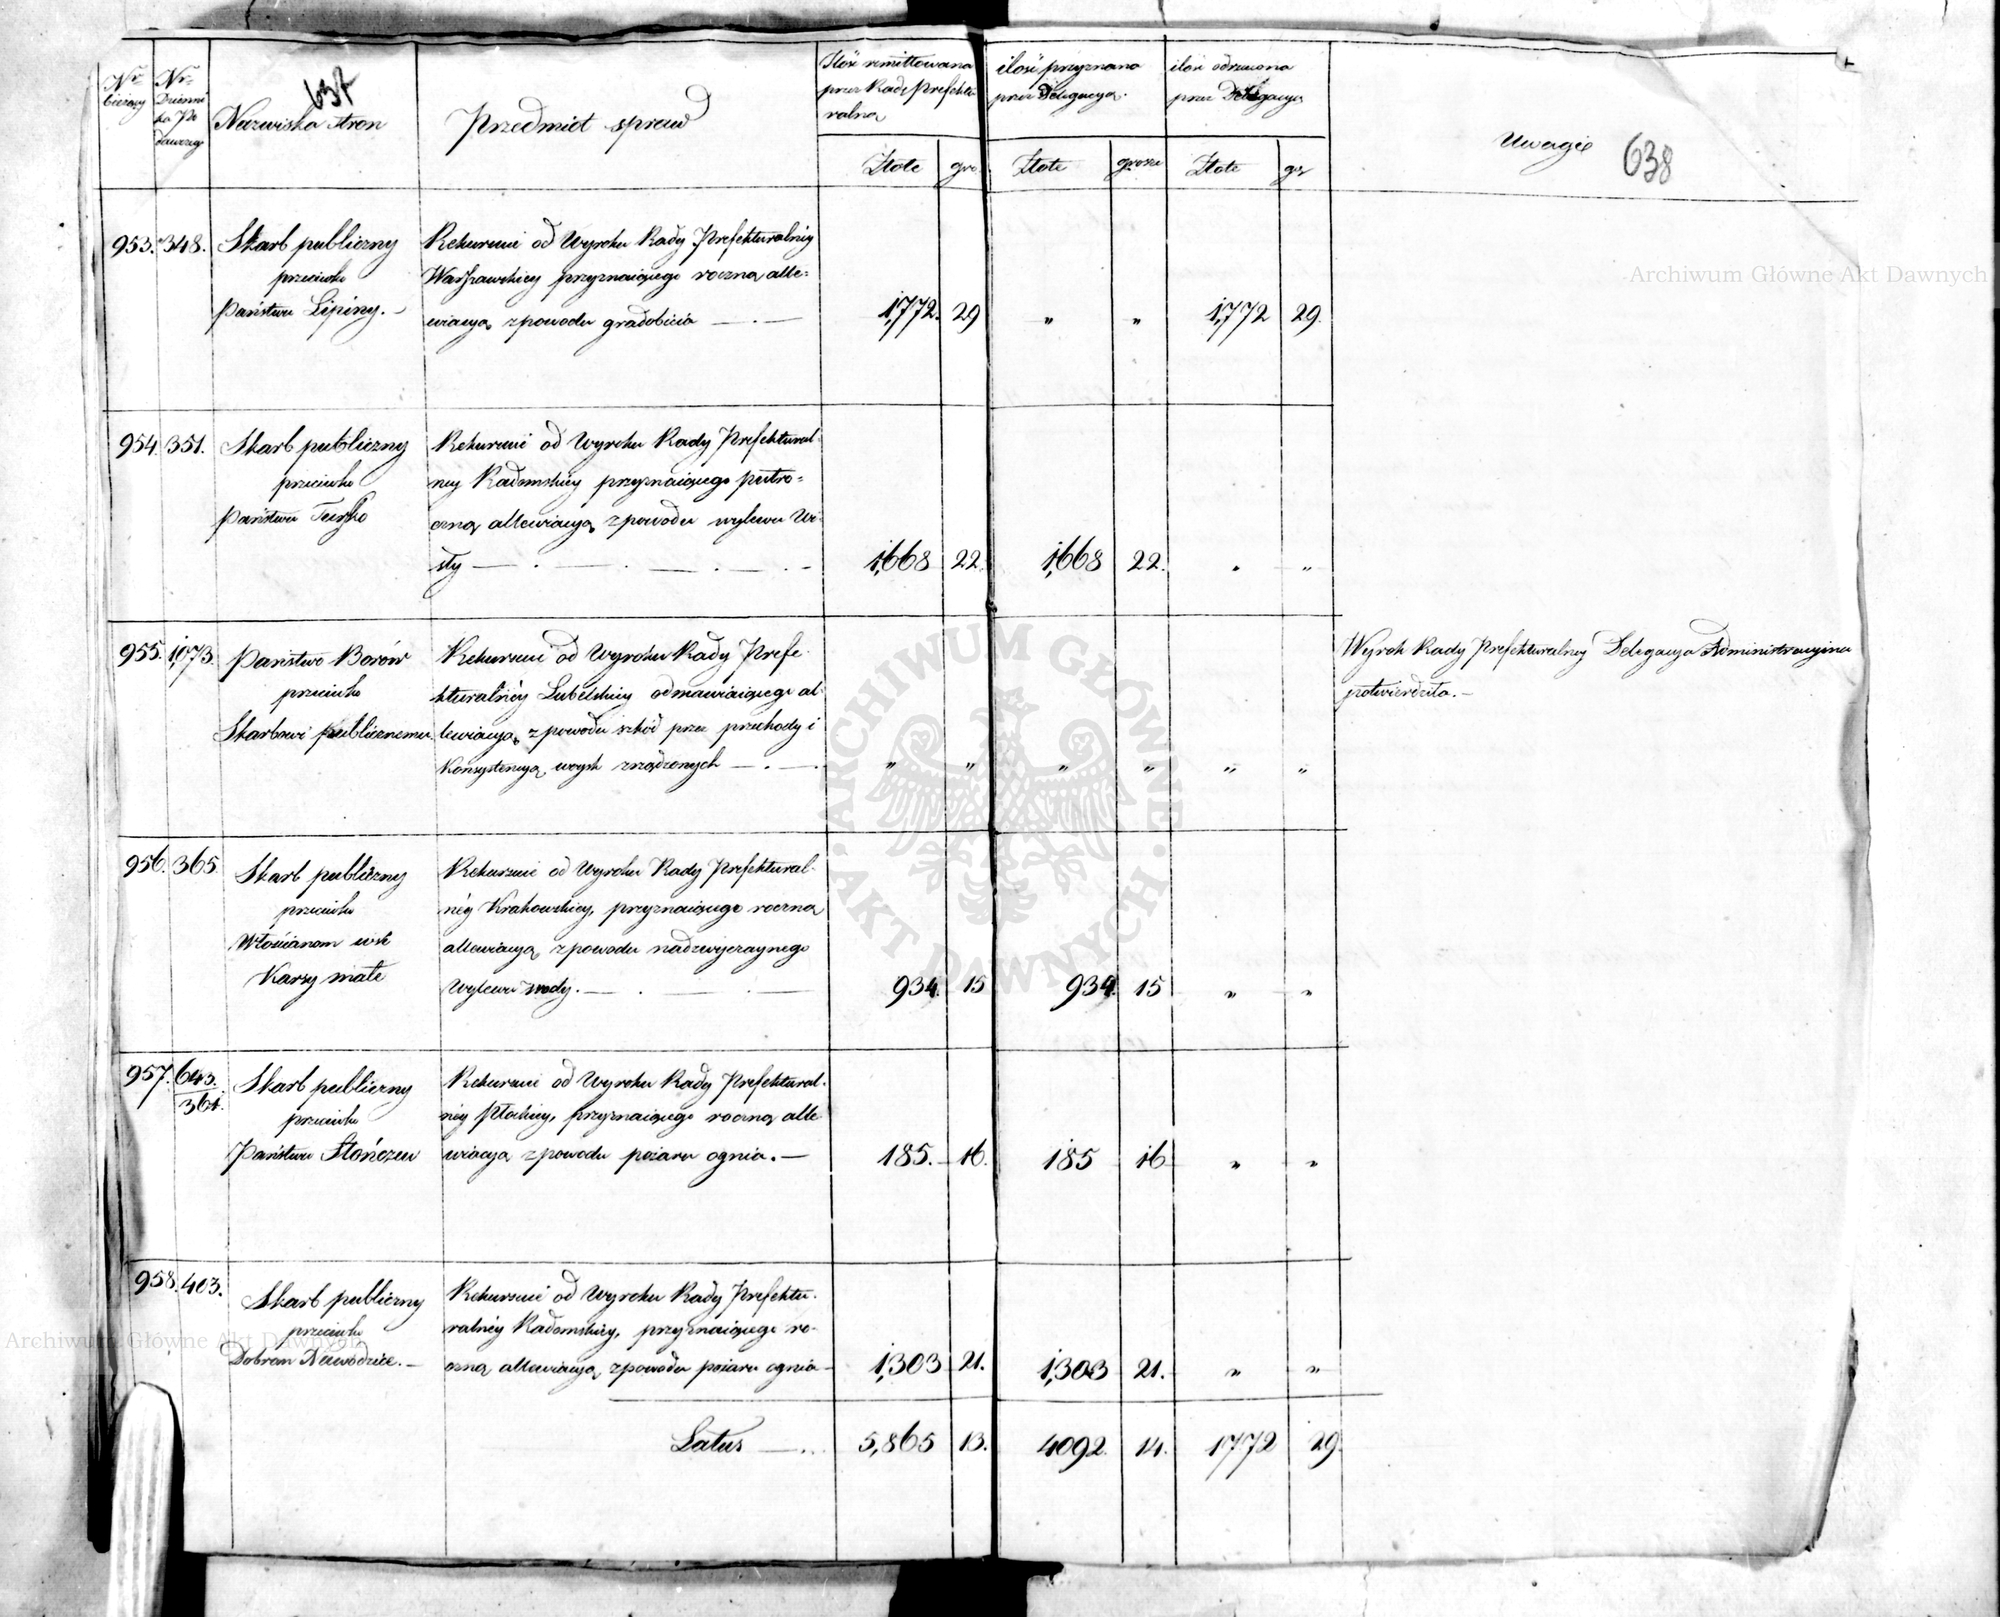 637
638
Nr bieżący
Nr Dziennika Podawczego
Nazwiska Stron
Przedmiot spraw
Ilość remittowana
przez Radę Prefektu
ralną
ilość przyznana
przez Delegacyą.
ilość odrzucona
przez Delegacyą
Uwagi
Złote gro. Złote grosze Złote gr
953. 348. Skarb publiczny
przeciwko
Państwu Lipiny.
Rekursuie od Wyroku Rady Prefekturalnéy
Warszawskiey przyznaiącego roczną alle=
wiacyą z powodu gradobicia
1,772. 29 " " 1,772 29.
954. 351. Skarb publiczny
przeciwko
Państwu Tursko
Rekursuie od Wyroku Rady Prefektural-
ney Radomskiéy przyznaiącego pułro=
czną allewiacyą z powodu wylewu Wi-
sły
1,668 22. 1,668 22. " "
955. 1,073. Państwo Borów
przeciwko
Skarbowi publicznemu
Rekursuie od Wyroku Rady Prefe-
kturalnéy Lubelskiey odmawiaiącego al-
lewiacyą, z powodu szkód przez przechody i
Konsystencyą woysk zrządzonych
" " " " " "
Wyrok Rady Prefekturalnéy Delegacya Administracyina
potwierdziła.
956. 365. Skarb publiczny
przeciwko
Włościanom wsi
Karsy małe
Rekursuie od Wyroku Rady Prefektural-
néy Krakowskiey, przyznaiącego roczną
allewiacyą z powodu nadzwyczaynego
Wylewu wody.
934. 15 934. 15 " "
957. 643.
361.
Skarb publiczny
przeciwko
Państwu Słończew
Rekursuie od Wyroku Rady Prefektural-
néy Płockiey, przyznaiącego roczną alle
wiacyą z powodu pożaru ognia.
185. 16. 185 16 " "
958. 403. Skarb publiczny
przeciwko
Dobrom Nawodzice.
Rekursuie od Wyroku Rady Prefektu-
ralnéy Radomskiéy, przyznaiącego ro-
czną allewiacyą z powodu pożaru ognia
1,303 21. 1,303 21. " "
Latus 5,865 13. 4092. 14. 1772 29.
Archiwum Główne Akt Dawnych
Archiwum Główne Akt Dawnych
ARCHIWUM GŁÓWNE
AKT DAWNYCH